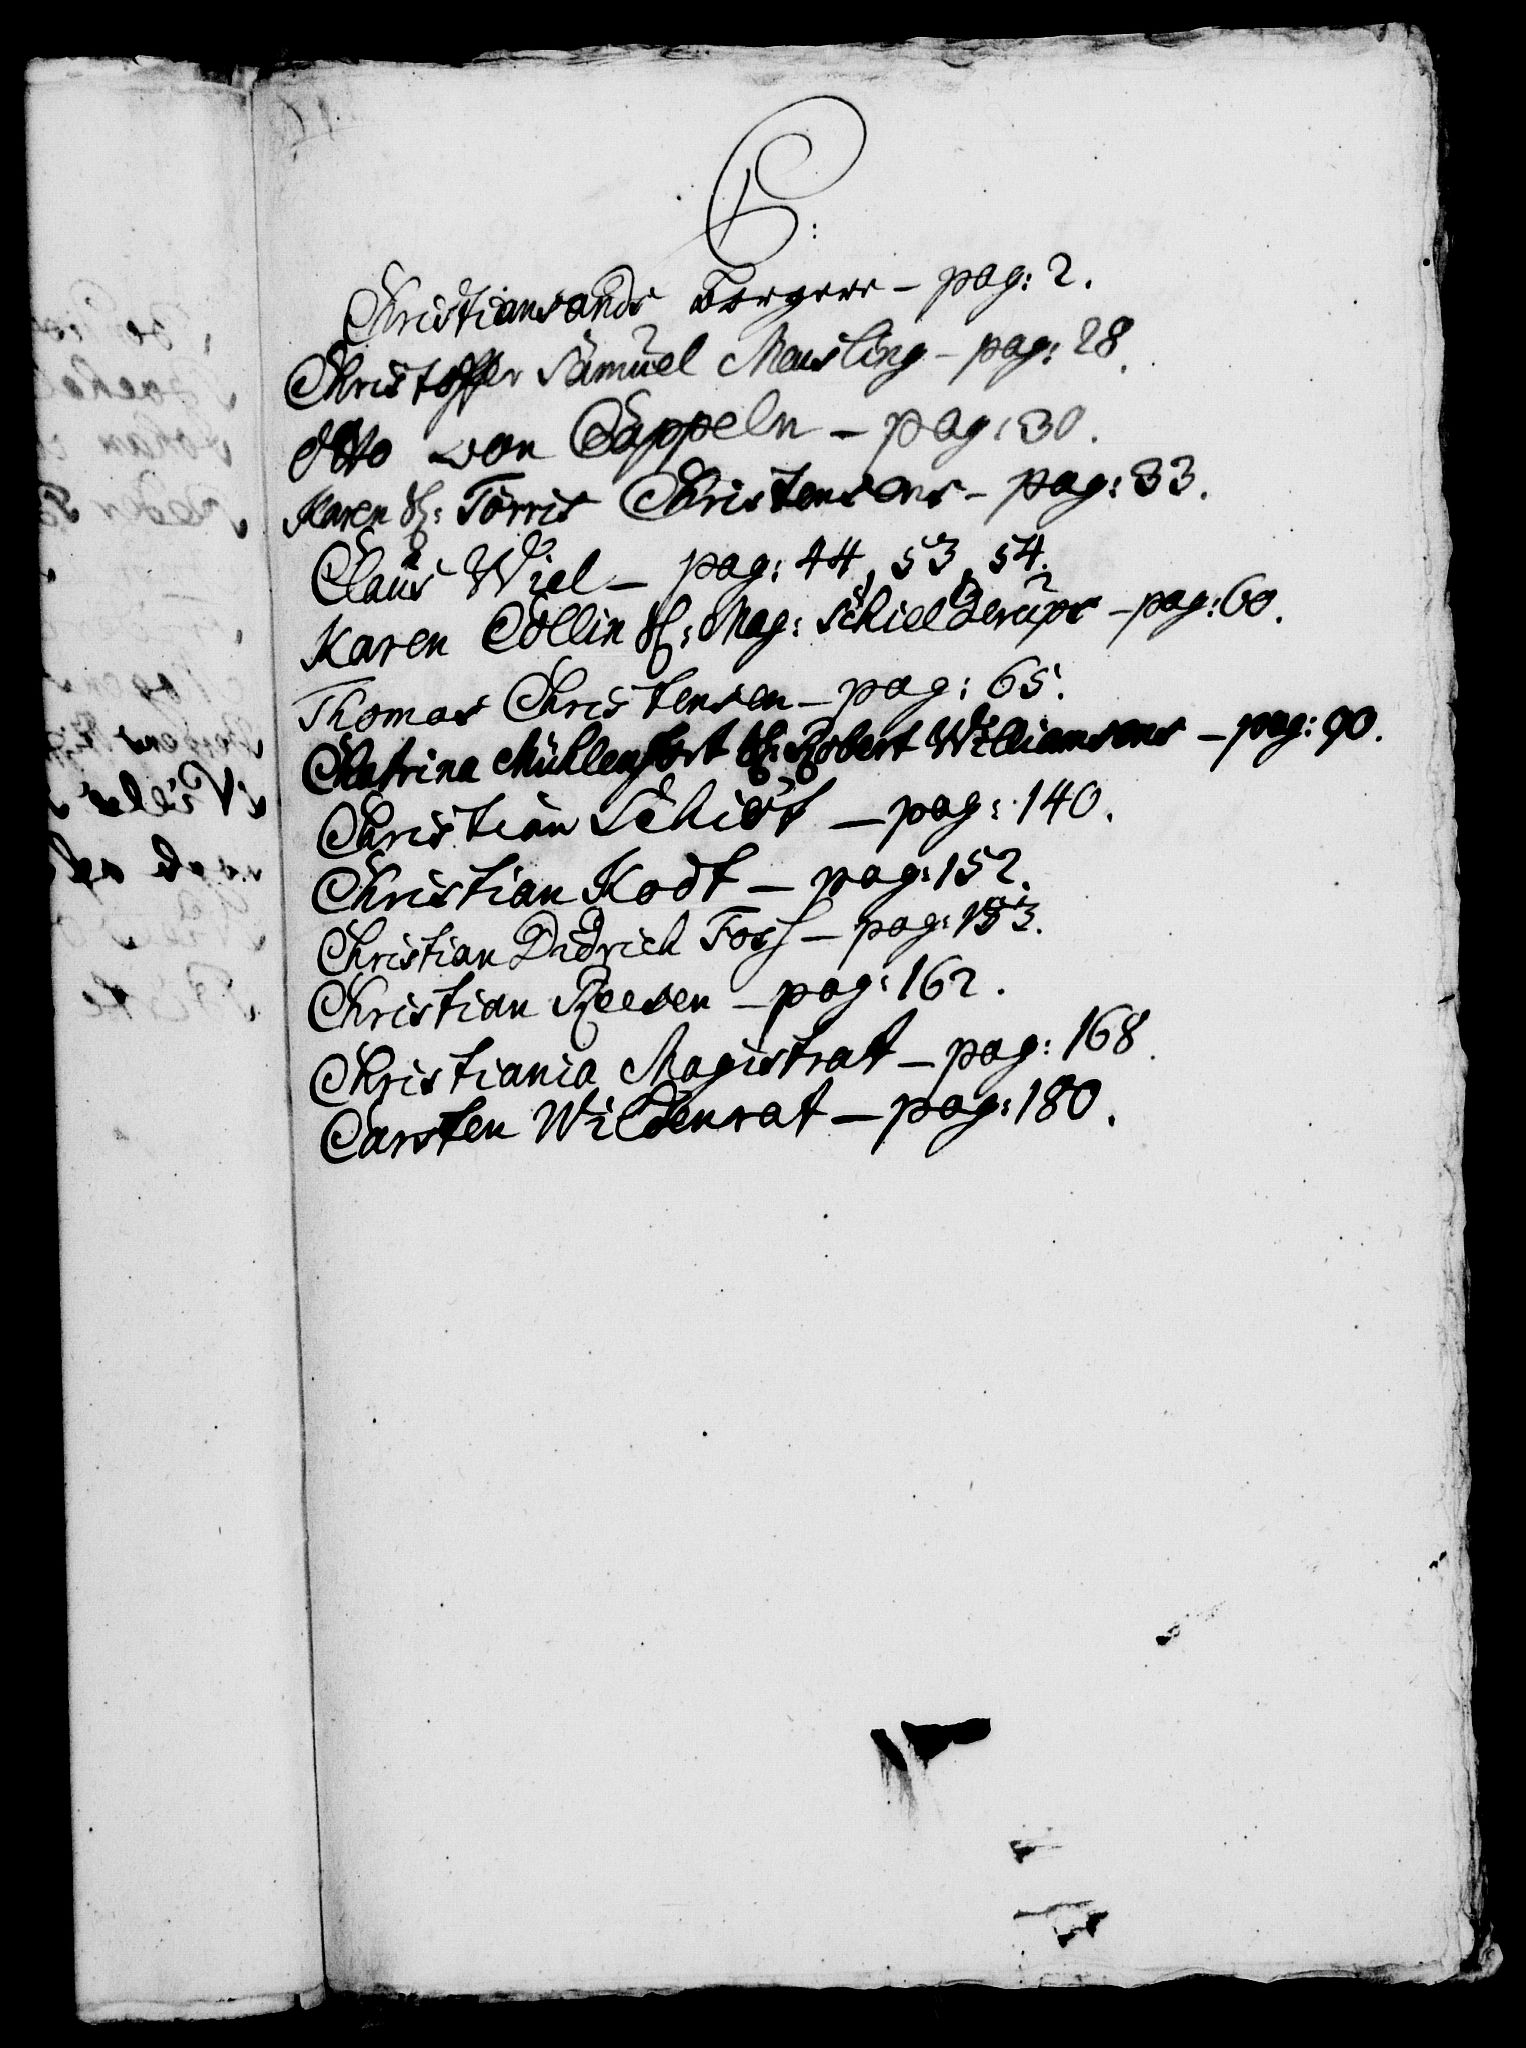 C:
Christiansands Borgere – pag: 2.
Christoffer Samuel Meusling – pag: 28.
Otto von Cappeln – pag: 30.
Karen Sl: Törris Christensens – pag: 33.
Claus Wiel – pag: 44, 53, 54.
Karen Collin Sl: Mag: Schielderups – pag: 60.
Thomas Christensen – pag: 65.
Chatrina Mühlenfort Sl: Robert Williamsens – pag: 90.
Christian Schiöt – pag: 140.
Christian Kodt – pag: 152.
Christian Didrich Fosh – pag: 153.
Christian Reesen – pag: 162.
Christiania Magistrat – pag: 168.
Carsten Wildenrat – pag: 180.